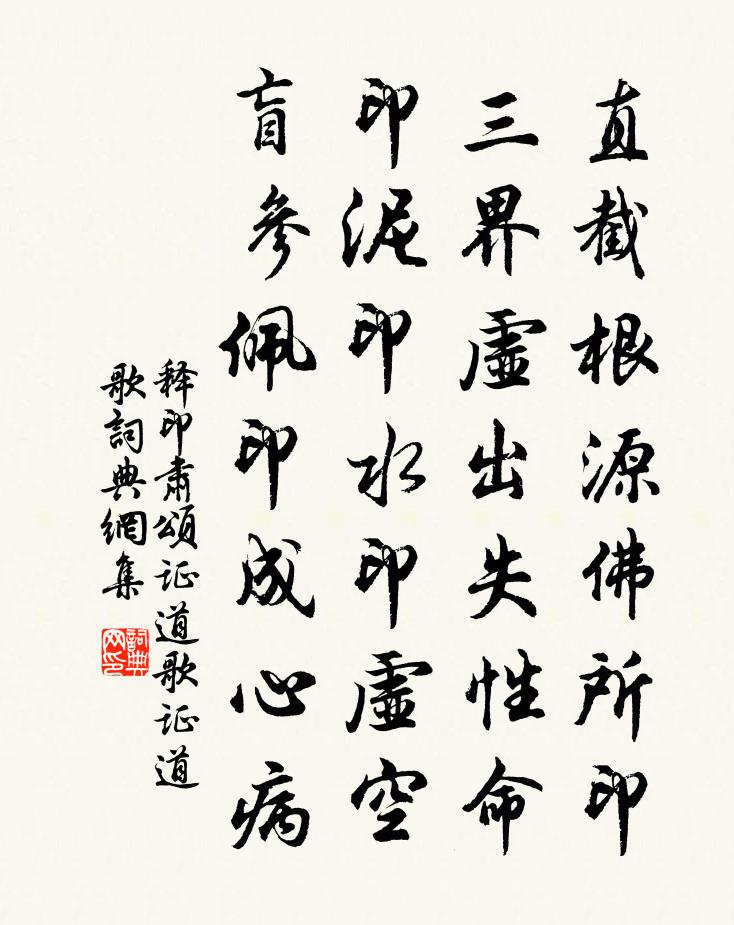 直截根源佛所印
三界虛出失性命
印泥印水印虛空
盲參佩印成心病
释印肅頌证道歌证道
歌詞典網集
詞典网印